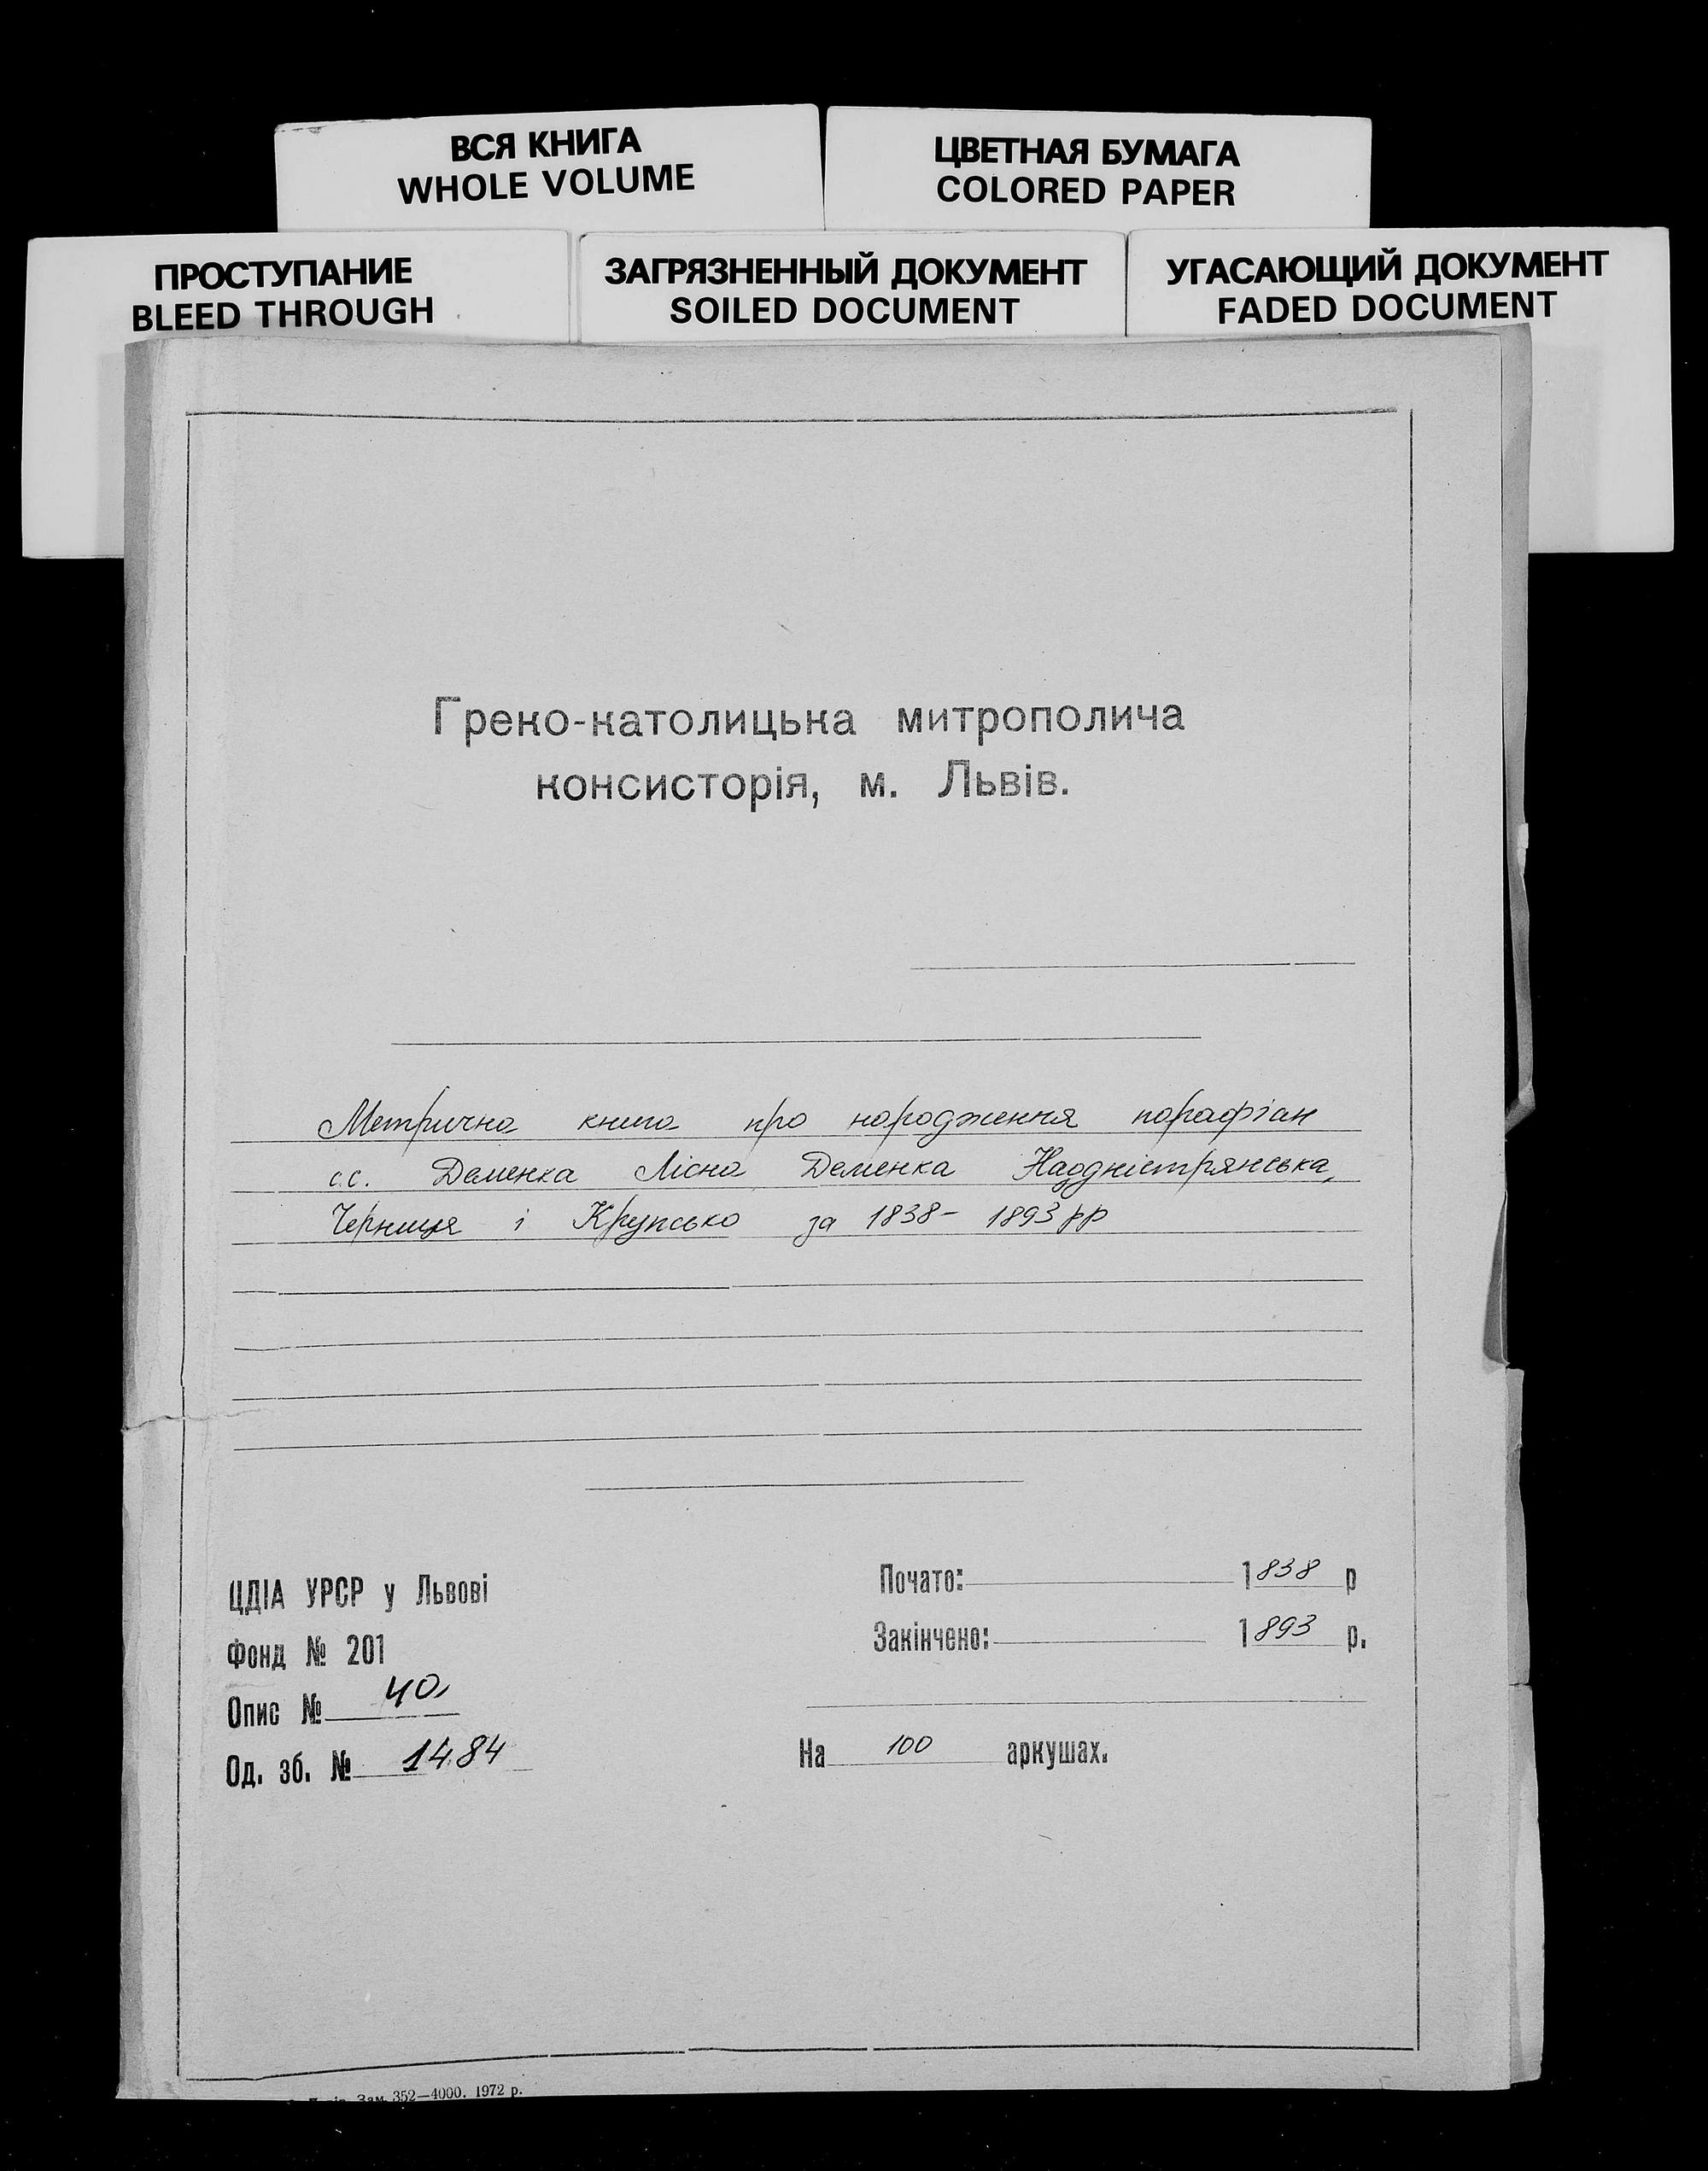 ВСЯ КНИГА
WHOLE VOLUME
ЦВЕТНАЯ БУМАГА
COLORED PAPER
ПРОСТУПАНИЕ
BLEED THROUGH
ЗАГРЯЗНЕННЫЙ ДОКУМЕНТ
SOILED DOCUMENT
УГАСАЮЩИЙ ДОКУМЕНТ
FADED DOCUMENT
Греко-католицька митрополича
консисторія, м. Львів.
Метрична книга про народження парафіан
с.с. Деменка Лісна Деменка Наддністрянська,
Черниця і Крупсько за 1838- 1893 рр
ЦДІА УРСР у Львові
Фонд № 201
Опис № 40,
Од. зб. № 1484
Почато: 1838 р
Закінчено: 1893 р.
На 100 аркушах.
Зам. 352—4000. 1972 р.